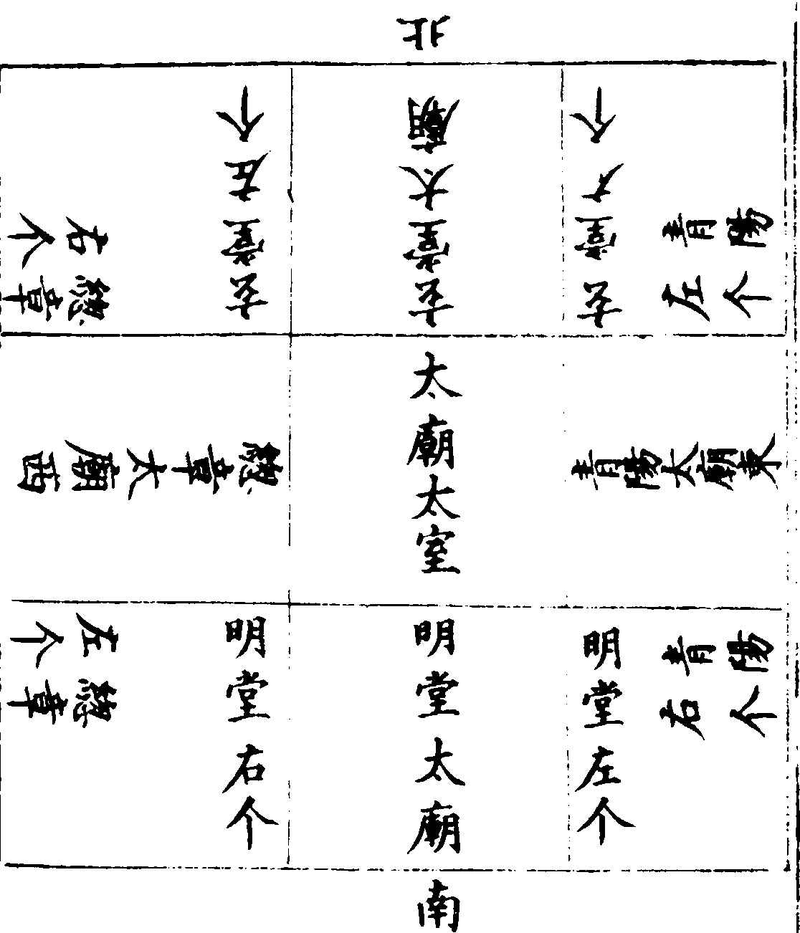 北
緫章右个
玄堂左个
玄堂大廟
玄堂大个
青陽左个
緫章大廟西
太廟太室
青陽太廟東
緫章左个
明堂右个
明堂太廟
明堂左个
青陽右个
南